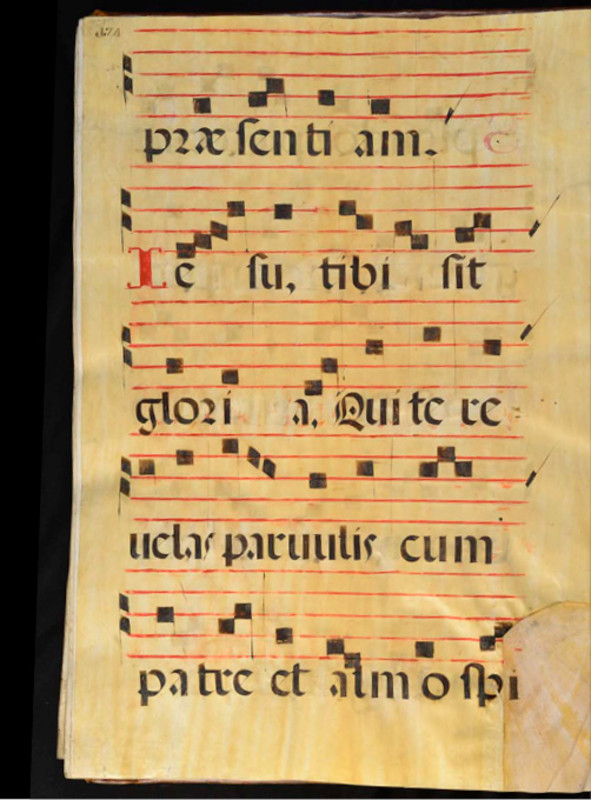 præsenti am.
Ie su, tibi sit
glori a, Qui te re
uelas paruulis cum
patre et almo spi